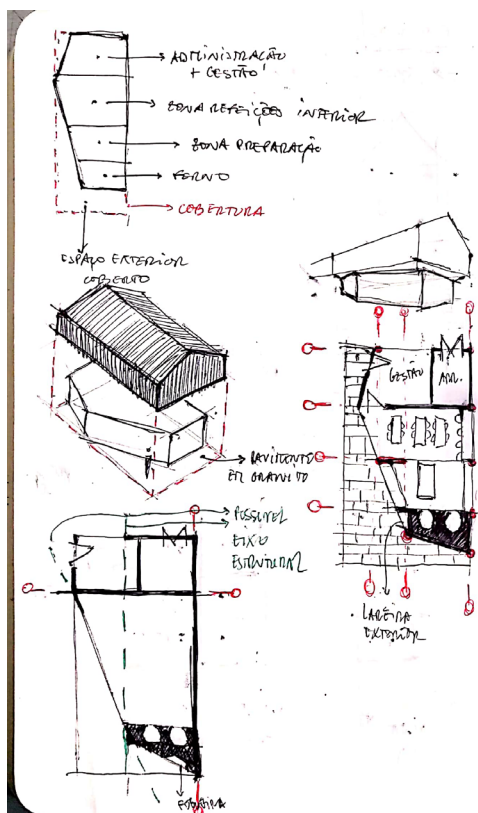 ADMINISTRAÇÃO
+ GESTÃO
ZONA REFEIÇÕES INTERIOR
ZONA PREPARAÇÃO
FORNO
COBERTURA
ESPAÇO EXTERIOR
COBERTO
PAVIMENTO
EM GRANITO
GESTÃO
ARR.
POSSÍVEL
EIXO
ESTRUTURAL
LAREIRA
EXTERIOR